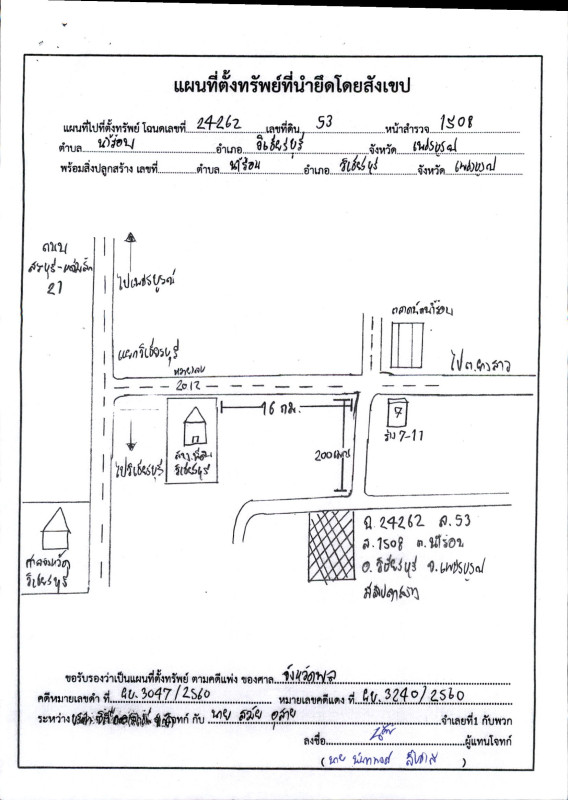 แผนที่ตั้งทรัพย์ที่นำยึดโดยสังเขป
แผนที่ไปที่ตั้งทรัพย์ โฉนดเลขที่ 24262 เลขที่ดิน 53 หน้าสำรวจ 1508
ตำบล น้ำร้อน อำเภอ วิเชียรบุรี จังหวัด เพชรบูรณ์
พร้อมสิ่งปลูกสร้าง เลขที่ ตำบล น้ำร้อน อำเภอ วิเชียรบุรี จังหวัด เพชรบูรณ์
ถนน
สระบุรี-หล่มสัก
21
ไปเพชรบูรณ์
ตลาดนัดน้ำร้อน
แยกวิเชียรบุรี
หมายเลข
2012
ไป ต.ยางสาว
16 กม.
7
ร้าน 7-11
ไปวิเชียรบุรี
วิเชียรบุรี
200 เมตร
ศาลจังหวัด
วิเชียรบุรี
ฉ.24262 ล.53
ส.1508 ต.น้ำร้อน
อ.วิเชียรบุรี จ.เพชรบูรณ์
ขอรับรองว่าเป็นแผนที่ตั้งทรัพย์ ตามคดีแพ่ง ของศาล จังหวัดพล
คดีหมายเลขดำ ที่ ผบ.3047/2560 หมายเลขคดีแดง ที่ ผบ.3240/2560
ระหว่าง โจทก์ กับ นาย สมัย จำเลยที่1 กับพวก
ลงชื่อ ผู้แทนโจทก์
( นาย )